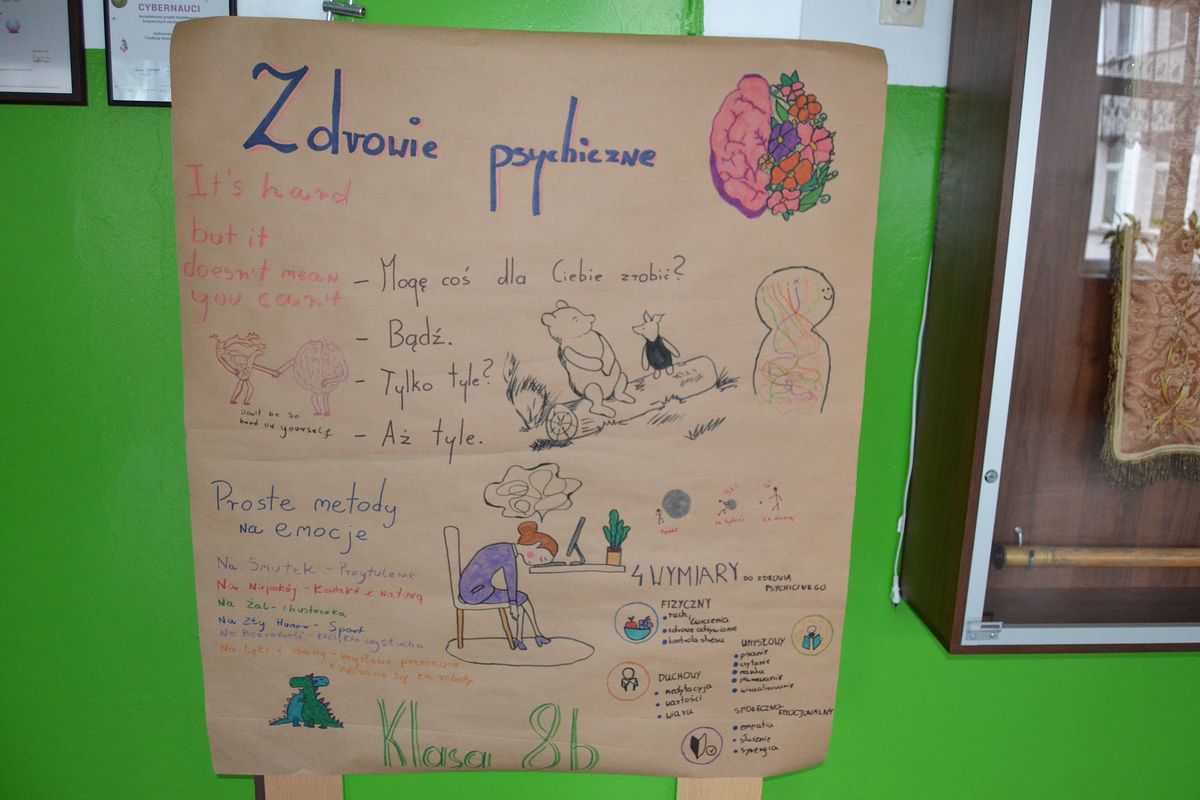 CYBERNAUCI
Zdrowie psychiczne
It's hard
but it
doesn't mean
you can't
- Mogę coś dla Ciebie zrobić?
- Bądź.
- Tylko tyle?
- Aż tyle.
Don't be so
hard on yourself
Proste metody
na emocje
Na Smutek - Przytulenie
Na Niepokój - Kontakt z naturą
Na Żal - chusteczka
Na Zły Humor - Sport
Na Bezradność -
Na Lęki i obawy - umysłowe
się za
Teraz
Za tydzień
Za miesiąc
4 WYMIARY DO ZDROWIA
PSYCHICZNEGO
FIZYCZNY
• ruch,
ćwiczenia
• zdrowe odżywianie
• kontrola stresu
UMYSŁOWY
• pisanie
• czytanie
• nauka
• planowanie
• wizualizowanie
DUCHOWY
• medytacja
• wartości
• wiara
SPOŁECZNO-
EMOCJONALNY
• empatia
• służenie
• synergia
Klasa 8b